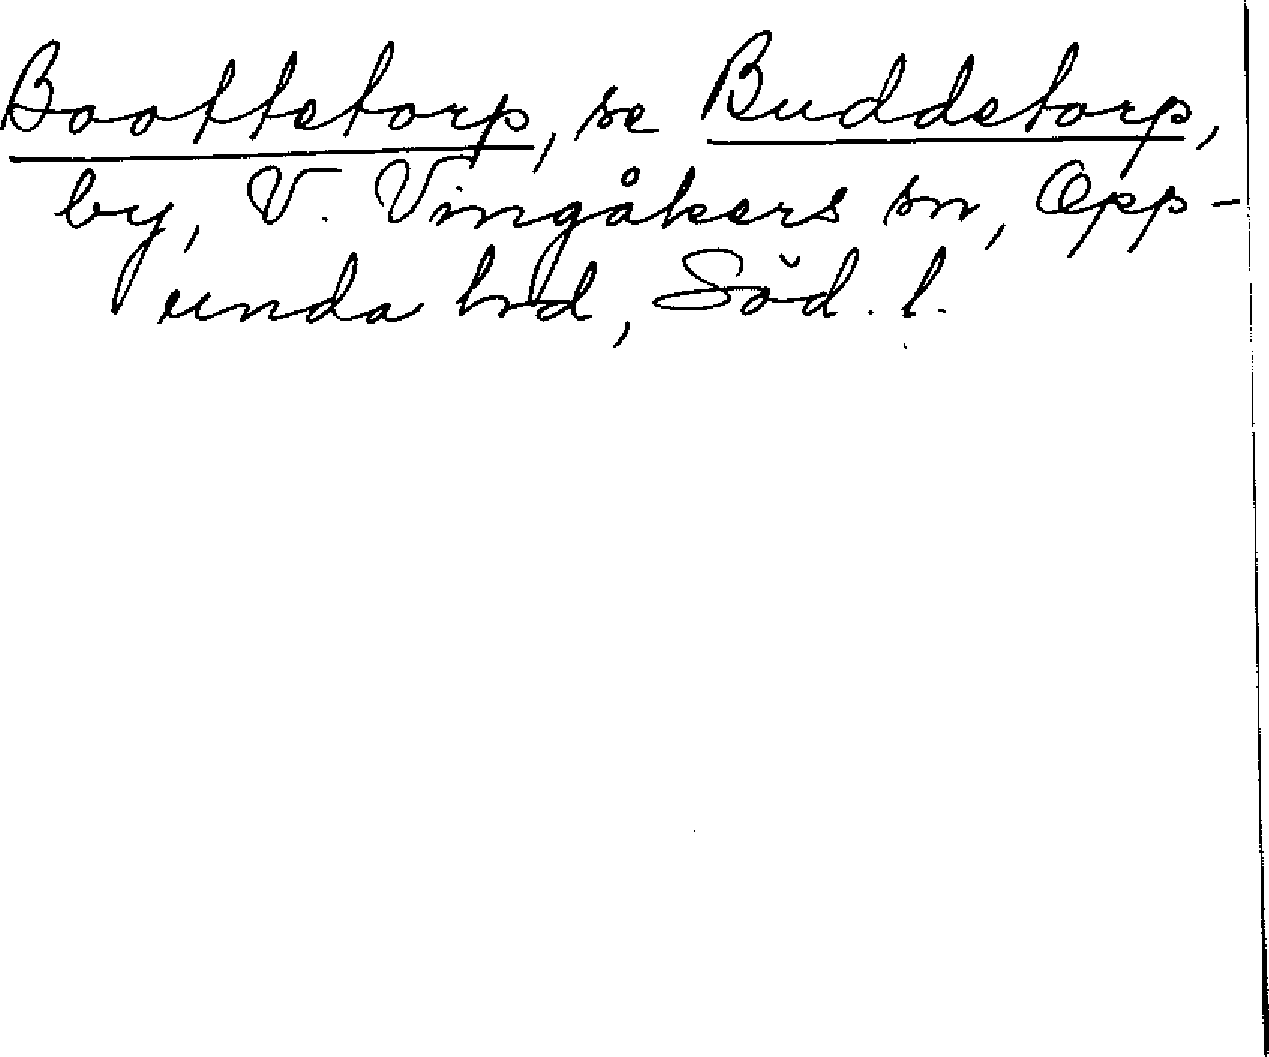 Boottetorp, se Buddetorp,
by, V. Vingåkers sn, Opp-
unda hd, Söd. l.